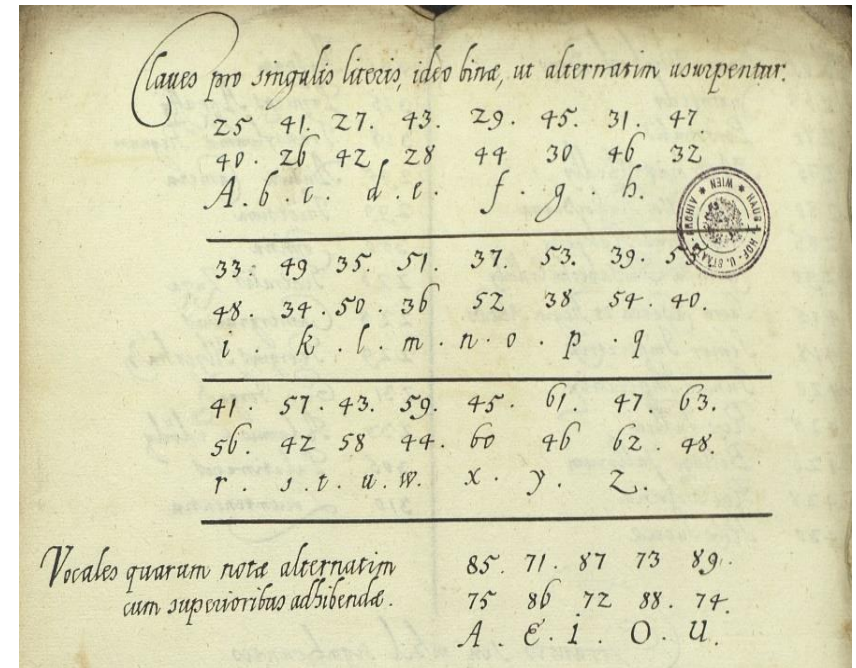 Claves pro singulis literis, ideo binæ, ut alternatim usurpentur.
25 41. 27. 43. 29. 45. 31. 47
40. 26 42 28 44 30 46 32
A. b. c. d. e. f. g. h.
33. 49 35. 51. 37. 53. 39. 55.
48. 34. 50. 36 52 38 54. 40.
i k. l. m. n. o. p. q
41. 57. 43. 59. 45. 61. 47. 63.
56. 42 58 44. 60 46 62. 48.
r. s. t. u. w. x. y. z.
Vocales quarum notæ alternatim
cum superioribus adhibendæ.
85. 71. 87 73 89.
75 86 72 88. 74.
A. E. i. O. U.
HAUS-, HOF- U. STAATS-ARCHIV
WIEN